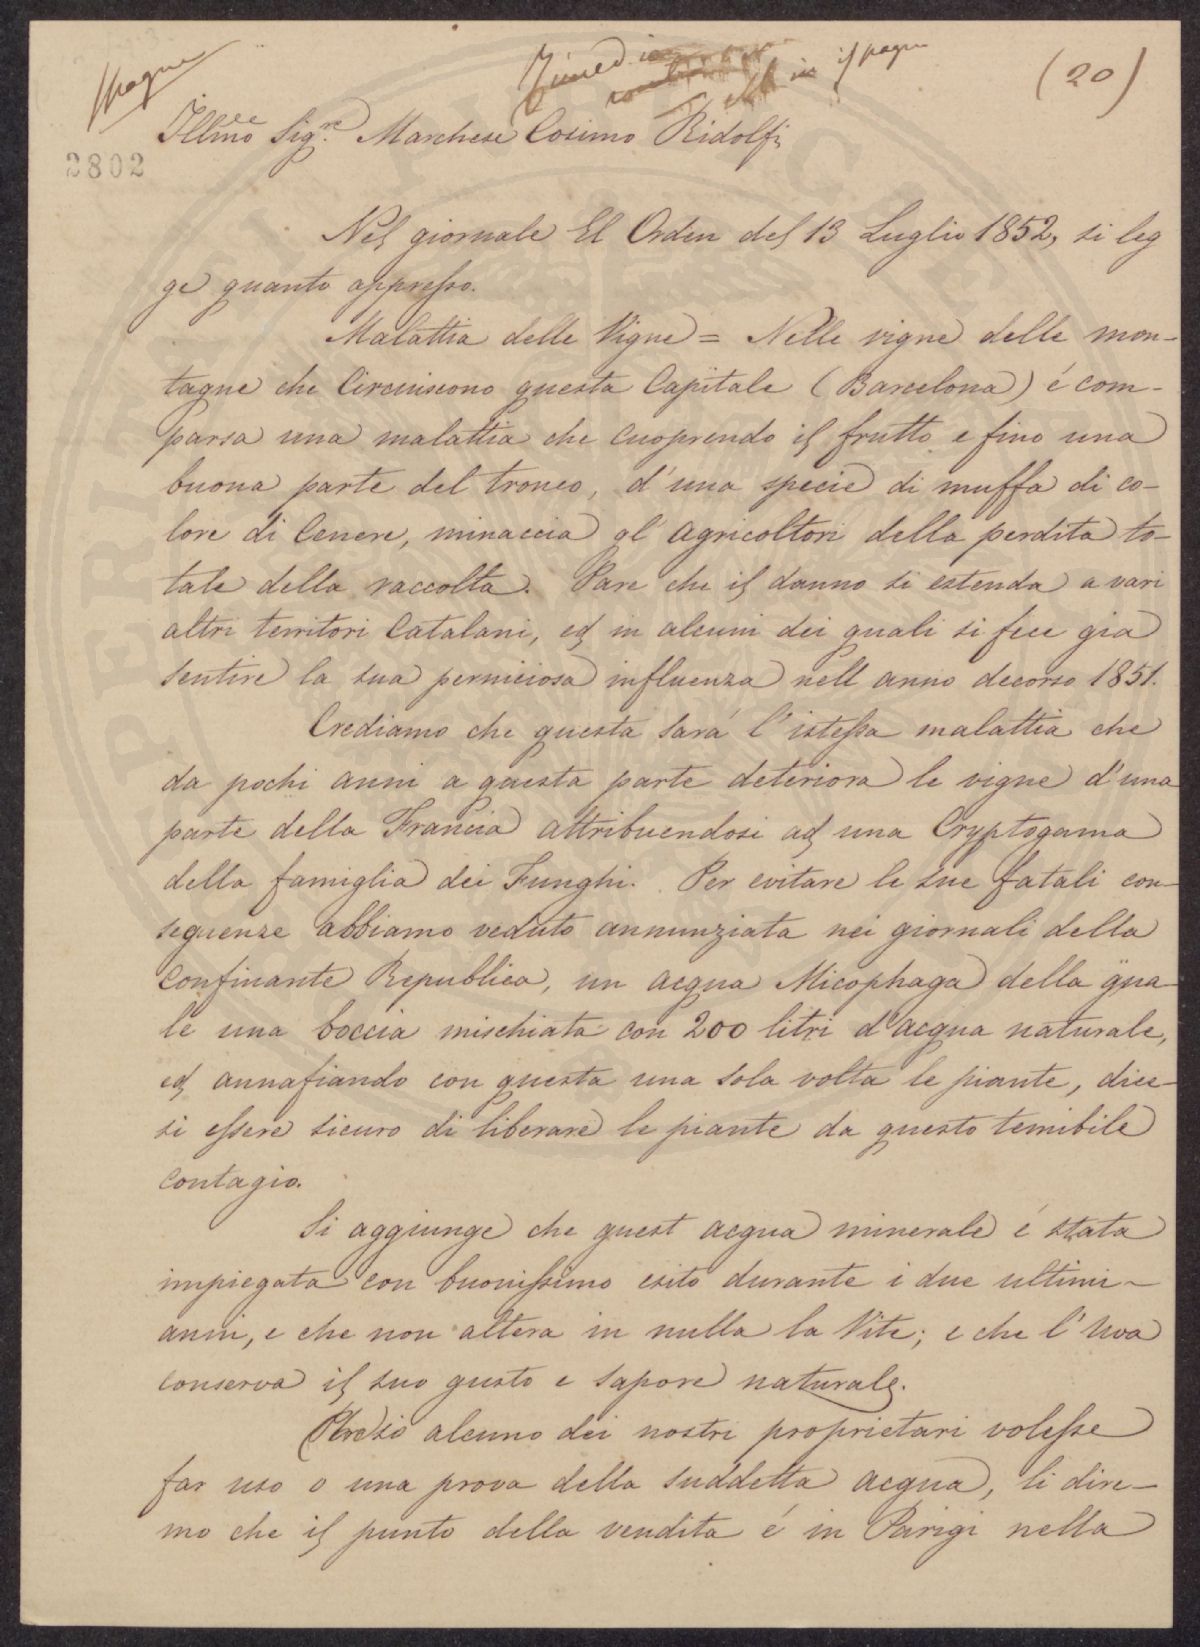 Spagna
Rimedio in Ispagna
(20)
Illmo Sigre Marchese Cosimo Ridolfi
2802
Nel giornale El Orden del 13 Luglio 1852, si leg
ge quanto appresso.
Malattia delle Vigne = Nelle vigne delle mon-
tagne che Circuiscono questa Capitale (Barcelona) é com-
parsa una malattia che cuoprendo il frutto e fino una
buona parte del tronco, d'una specie di muffa di co-
lore di Cenere, minaccia gl' agricoltori della perdita to-
tale della raccolta. Pare che il danno si estenda a vari
altri territori Catalani, ed in alcuni dei quali si fece gia
sentire la sua perniciosa influenza nell anno decorso 1851.
Crediamo che questa sará l'istessa malattia che
da pochi anni a questa parte deteriora le vigne d'una
parte della Francia attribuendosi ad una Cryptogama
della famiglia dei Funghi. Per evitare le sue fatali con-
seguenze abbiamo veduto annunziata nei giornali della
confinante Republica, un acqua Micophaga della qua-
le una boccia mischiata con 200 litri d'acqua naturale,
ed annafiando con questa una sola volta le piante, dice-
si essere sicuro di liberare le piante da questo temibile
contagio.
Si aggiunge che quest acqua minerale é stata
impiegata con buonissimo esito durante i due ultimi
anni, e che non altera in nulla la Vite; e che l'Uva
conserva il suo gusto e sapore naturale.
alcuno dei nostri proprietari volesse
far uso o una prova della suddetta acqua, li dire-
mo che il punto della vendita é in Parigi nella